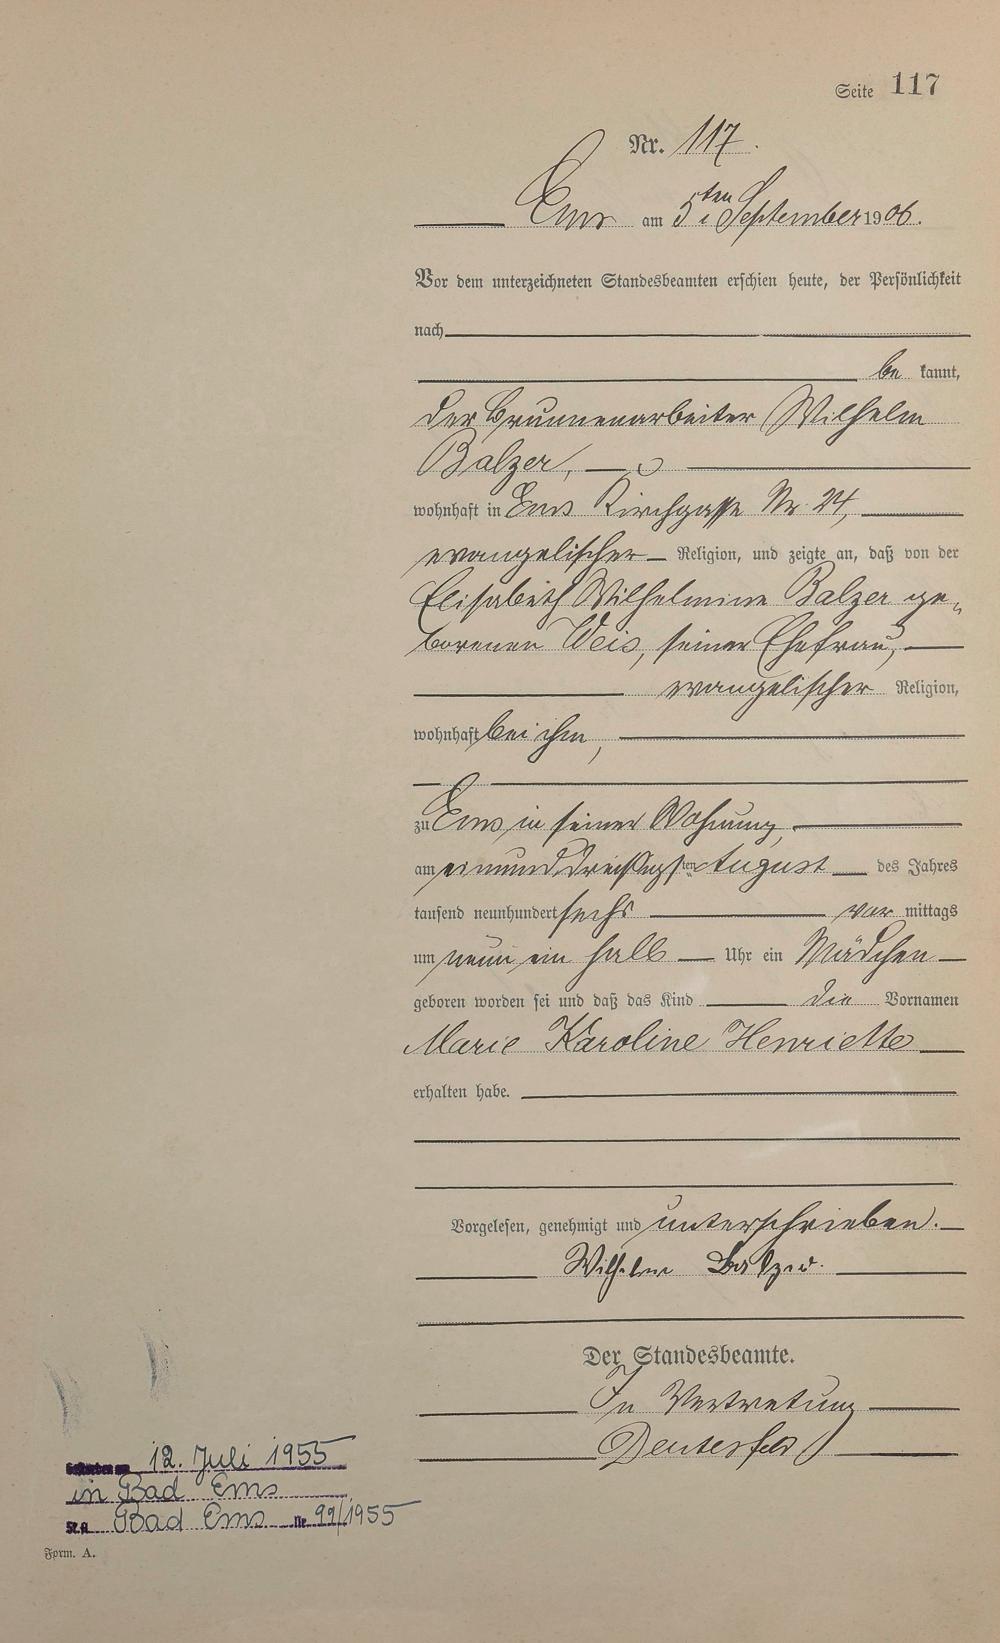 Seite 117
Nr. 117.
Ems am 5ten September 1906.
Vor dem unterzeichneten Standesbeamten erschien heute, der Persönlichkeit
nach
be kannt,
der Brunnenarbeiter Wilhelm
Balzer,
wohnhaft in Ems Kirchgasse Nr. 24,
evangelischer Religion, und zeigte an, daß von der
Elisabeth Wilhelmine Balzer ge-
borenen Weis, seiner Ehefrau,
evangelischer Religion,
wohnhaft bei ihm,
zu Ems in seiner Wohnung,
am einunddreißigsten August des Jahres
tausend neunhundert sechs vor mittags
um neun ein halb Uhr ein Mädchen
geboren worden sei und daß das Kind die Vornamen
Marie Karoline Henriette
erhalten habe.
Vorgelesen, genehmigt und unterschrieben.
Wilhelm Balzer.
Der Standesbeamte.
In Vertretung
Gestorben am 12. Juli 1955
in Bad Ems
St.A. Bad Ems Nr 99/1955
Form. A.